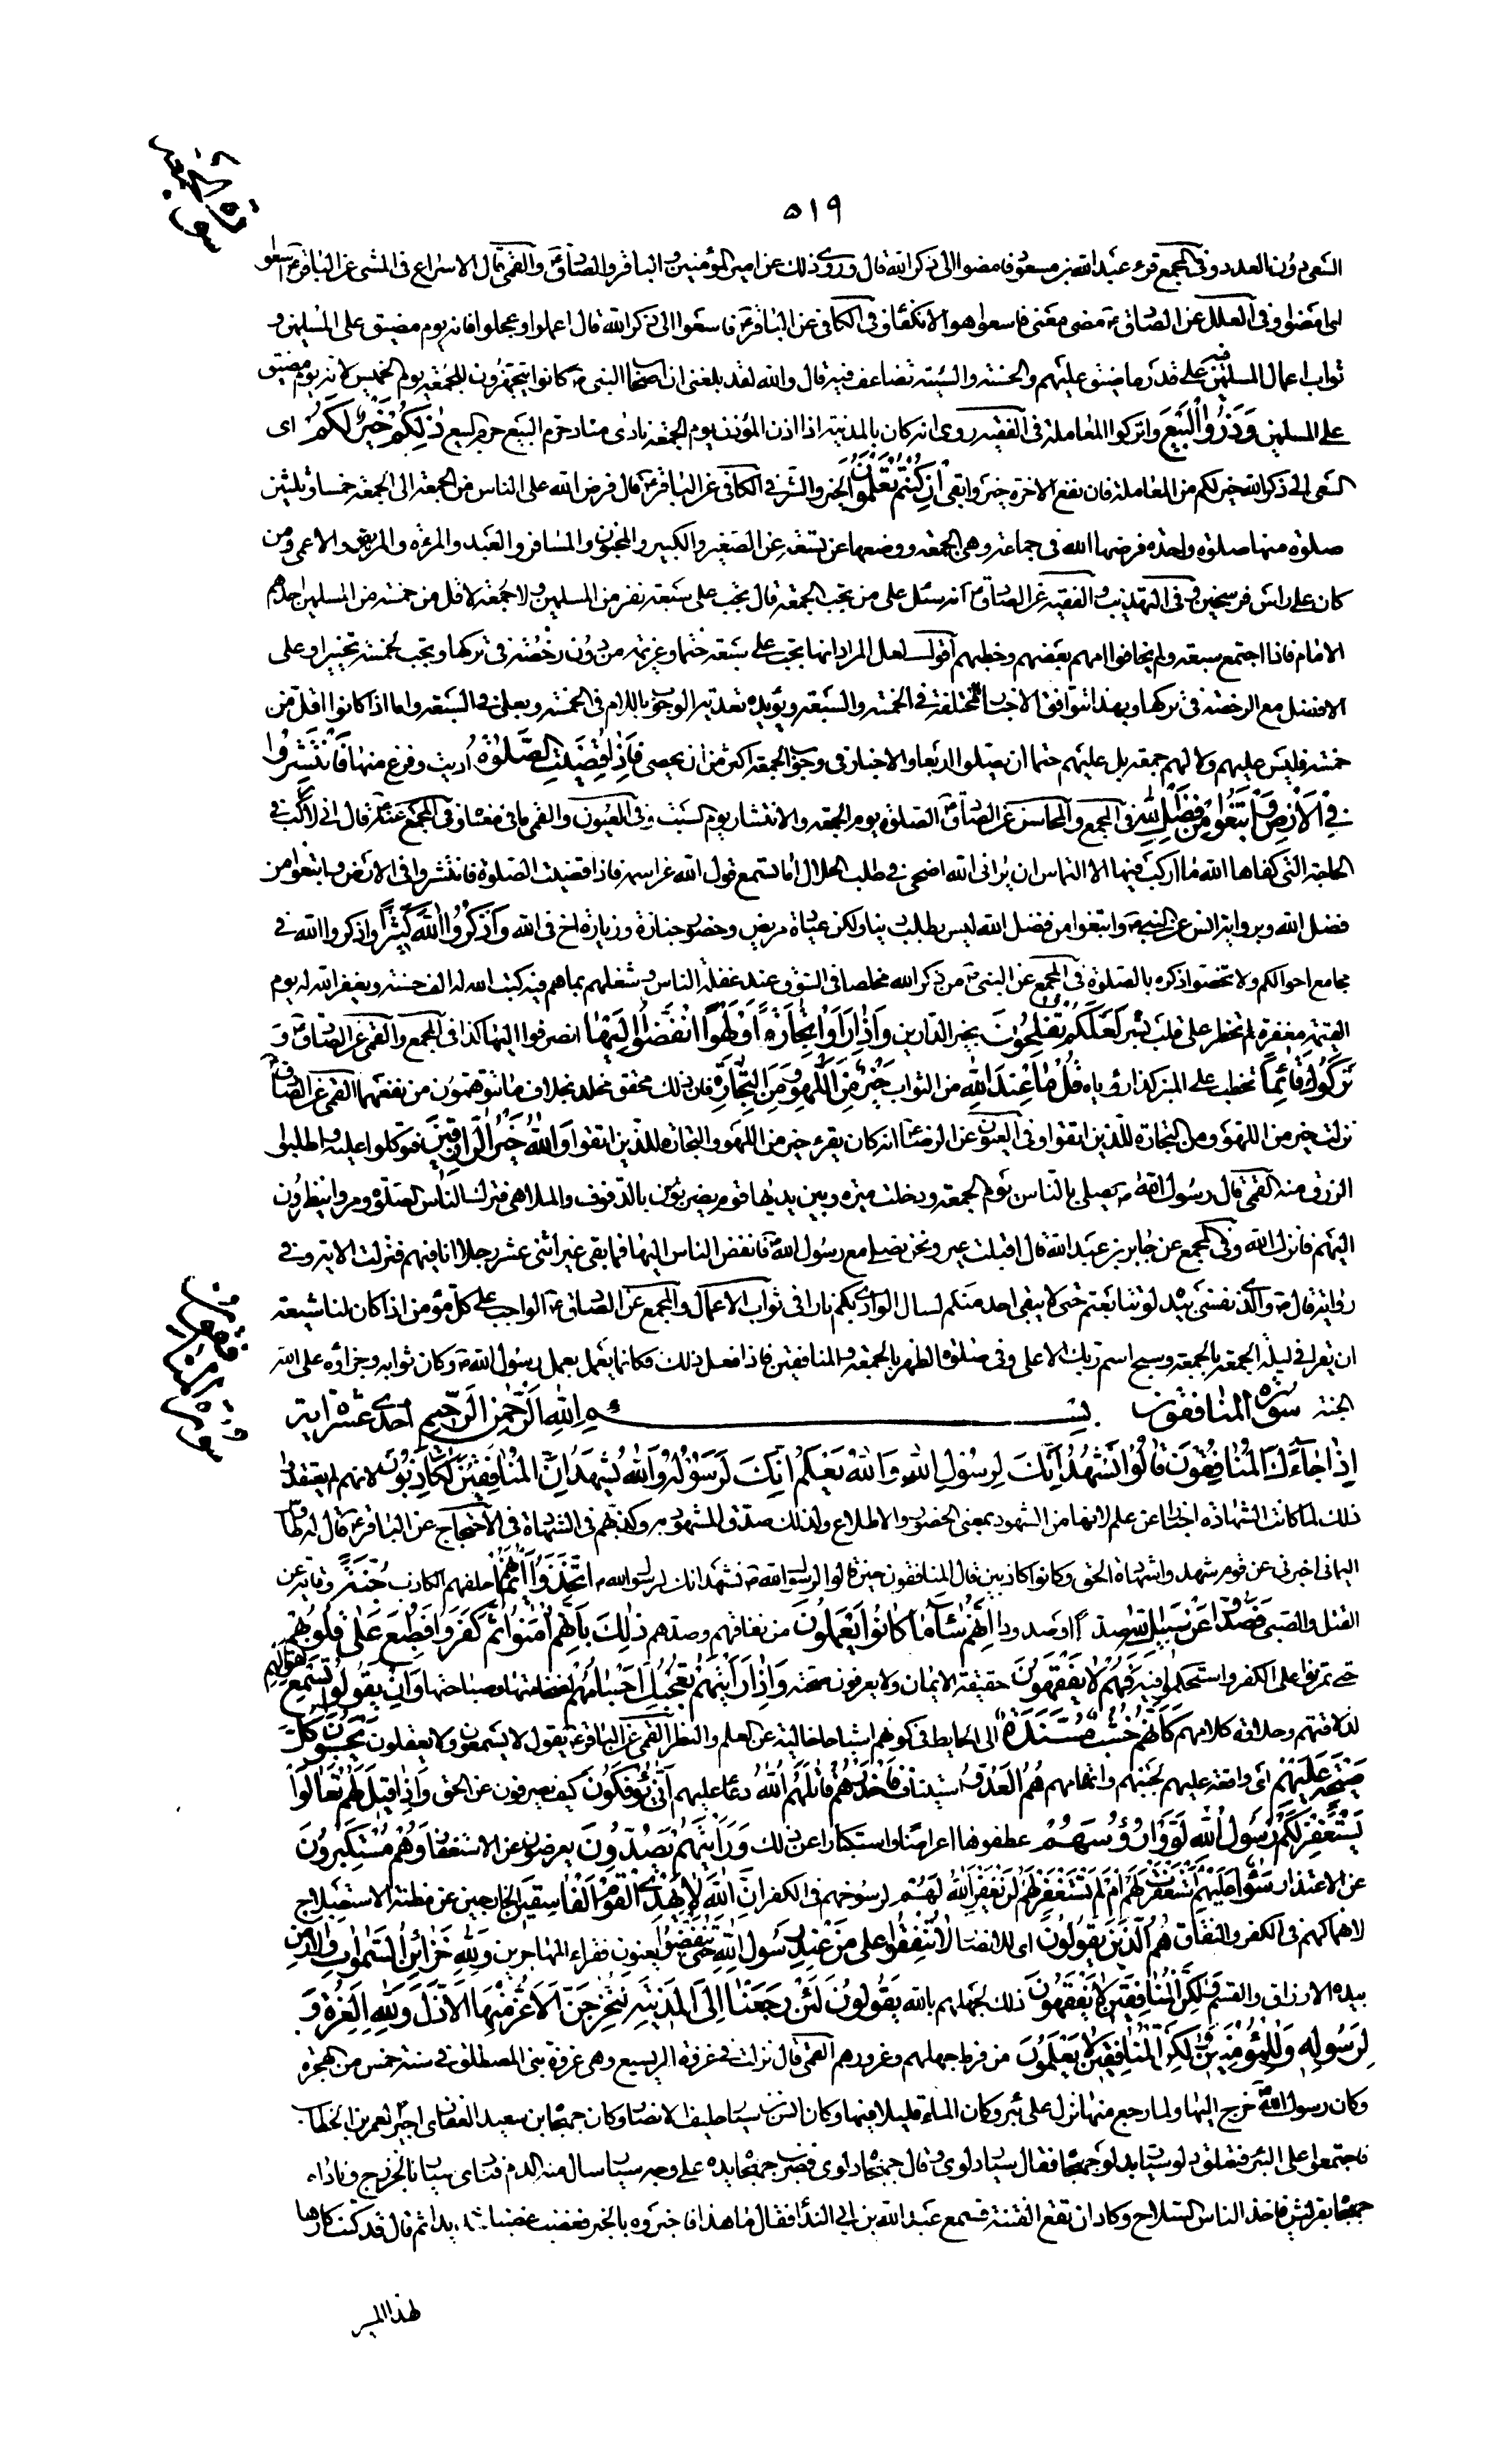 ٥١٩
السعى دون العدو وفى المجمع قرء عبد الله بن مسعود فامضوا الى ذكر الله قال وروى ذلك عن امير المؤمنين والباقر والصادق ع والقمى قال الاسراع فى المشى عن الباقر ع اسعوا
اى امضوا وفى العلل عن الصادق ع معنى فاسعوا هو الانكفاء وفى الكافى عن الباقر ع فاسعوا الى ذكر الله قال اعملوا وعجلوا فانه يوم مضيق على المسلمين و
ثواب اعمال المسلمين فيه على قدر ما ضيق عليهم والحسنة والسيئة تضاعف فيه قال والله لقد بلغنى ان اصحاب النبى ص كانوا يتجهزون للجمعة يوم الخميس لانه يوم مضيق
على المسلمين وَذَرُوا الْبَيْعَ واتركوا المعاملة فى الفقيه روى انه كان بالمدينة اذا اذن المؤذن يوم الجمعة نادى مناد حرم البيع حرم البيع ذٰلِكُمْ خَيْرٌ لَكُمْ اى
السعى الى ذكر الله خير لكم من المعاملة فان نفع الاخرة خير وابقى اِنْ كُنْتُمْ تَعْلَمُونَ الخير والشر فى الكافى عن الباقر ع قال فرض الله على الناس من الجمعة الى الجمعة خمسا وثلثين
صلوة منها صلوة واحدة فرضها الله فى جماعة وهى الجمعة ووضعها عن تسعة عن الصغير والكبير والمجنون والمسافر والعبد والمرءة والمريض والاعمى ومن
كان على راس فرسخين وفى التهذيب والفقيه عن الصادق ع انه سئل على من تجب الجمعة قال تجب على سبعة نفر من المسلمين ولا جمعة لاقل من خمسة من المسلمين احدهم
الامام فاذا اجتمع سبعة ولم يخافوا امهم بعضهم وخطبهم اقول لعل المراد انها تجب على سبعة حتما وعزيمة من دون رخصة فى تركها وتجب لخمسة تخييرا وعلى
الافضل مع الرخصة فى تركها وبهذا تتوافق الاخبار المختلفة فى الخمسة والسبعة ويؤيده تعدية الوجوب باللام فى الخمسة وبعلى فى السبعة واما اذا كانوا اقل من
خمسة فليس عليهم ولا لهم جمعة بل عليهم حتما ان يصلوا اربعا والاخبار فى وجوب الجمعة اكثر من ان يحصى فَاِذٰا قُضِيَتِ الصَّلٰوةُ اديت وفرغ منها فَانْتَشِرُوا
فِى الْاَرْضِ وَابْتَغُوا مِنْ فَضْلِ اللهِ فى المجمع والمحاسن عن الصادق ع الصلوة يوم الجمعة والانتشار يوم السبت وفى العيون والقمى ما فى معناه وفى المجمع عنه ع قال انى لاركب فى
الحاجة التى كفاها الله ما اركب فيها الا التماس ان يرانى الله اضحى فى طلب الحلال اما تسمع قول الله عز اسمه فاذا قضيت الصلوة فانتشروا فى الارض وابتغوا من
فضل الله وبرواية انس عن النبى ص وابتغوا من فضل الله ليس بطلب دنيا ولكن عيادة مريض وحضور جنازة وزيارة اخ فى الله وَاذْكُرُوا اللهَ كَثيرًا واذكروا الله فى
مجامع احوالكم ولا تخصوا ذكره بالصلوة فى المجمع عن النبى ص من ذكر الله مخلصا فى السوق عند غفلة الناس وشغلهم بما هم فيه كتب الله له الف حسنة ويغفر الله له يوم
القيمة مغفرة لم تخطر على قلب بشر لَعَلَّكُمْ تُفْلِحُونَ بخير الدارين وَاِذٰا رَاَوْا تِجٰارَةً اَوْ لَهْوًا انْفَضُّوا اِلَيْهٰا انصرفوا اليها كذا فى المجمع والقمى عن الصادق ع وَ
تَرَكُوكَ قٰائِمًا تخطب على المنبر كذا رواه قُلْ مٰا عِنْدَ اللهِ من الثواب خَيْرٌ مِنَ اللَّهْوِ وَمِنَ التِّجٰارَةِ فان ذلك محقق مخلد بخلاف ما تتوهمون من نفعهما القمى عن الصادق ع
نزلت خير من اللهو ومن التجارة للذين اتقوا وفى العيون عن الرضا ع انه كان يقرء خير من اللهو والتجارة للذين اتقوا وَاللهُ خَيْرُ الرّٰازِقينَ فتوكلوا عليه واطلبوا
الرزق منه القمى قال كان رسول الله ص يصلى بالناس يوم الجمعة ودخلت ميرة وبين يديها قوم يضربون بالدفوف والملاهى فترك الناس الصلوة ومروا ينظرون
اليهم فانزل الله وفى المجمع عن جابر بن عبد الله قال اقبلت عير ونحن نصلى مع رسول الله ص فانفض الناس اليها فما بقى غير اثنى عشر رجلا انا فيهم فنزلت الاية وفى
رواية قال ص والذى نفسى بيده لو تتابعتم حتى لا يبقى احد منكم لسال الوادى بكم نارا فى ثواب الاعمال والمجمع عن الصادق ع الواجب على كل مؤمن اذا كان لنا شيعة
ان يقرا فى ليلة الجمعة بالجمعة وسبح اسم ربك الاعلى وفى صلوة الظهر بالجمعة والمنافقين فاذا فعل ذلك فكانما يعمل بعمل رسول الله ص وكان ثوابه وجزاؤه على الله
الجنة سورة المنافقون بسم الله الرحمن الرحيم احدى عشرة اية
اِذٰا جٰاءَكَ الْمُنٰافِقُونَ قٰالُوا نَشْهَدُ اِنَّكَ لَرَسُولُ اللهِ وَاللهُ يَعْلَمُ اِنَّكَ لَرَسُولُهُ وَاللهُ يَشْهَدُ اِنَّ الْمُنٰافِقينَ لَكٰاذِبُونَ لانهم لم يعتقدوا
ذلك لما كانت الشهادة اخبارا عن علم لانها من الشهود بمعنى الحضور والاطلاع ولذلك صدق المشهود به وكذبهم فى الشهادة فى الاحتجاج عن الباقر ع قال له طاوس
اليمانى اخبرنى عن قوم شهدوا شهادة الحق وكانوا كاذبين قال المنافقون حين قالوا لرسول الله ص نشهد انك لرسول الله اِتَّخَذُوا اَيْمٰانَهُمْ حلفهم الكاذب جُنَّةً وقاية عن
القتل والسبى فَصَدُّوا عَنْ سَبيلِ اللهِ صدا او صدودا اِنَّهُمْ سٰاءَ مٰا كٰانُوا يَعْمَلُونَ من نفاقهم وصدهم ذٰلِكَ بِاَنَّهُمْ اٰمَنُوا ثُمَّ كَفَرُوا فَطُبِعَ عَلٰى قُلُوبِهِمْ
حتى تمرنوا على الكفر واستحكموا فيه فَهُمْ لٰا يَفْقَهُونَ حقيقة الايمان ولا يعرفون صحته وَاِذٰا رَاَيْتَهُمْ تُعْجِبُكَ اَجْسٰامُهُمْ لضخامتها وصباحتها وَاِنْ يَقُولُوا تَسْمَعْ لِقَوْلِهِمْ
لذلاقتهم وحلاوة كلامهم كَاَنَّهُمْ خُشُبٌ مُسَنَّدَةٌ الى الحايط فى كونهم اشباحا خالية عن العلم والنظر القمى عن الباقر ع يقول لا يسمعون ولا يعقلون يَحْسَبُونَ كُلَّ
صَيْحَةٍ عَلَيْهِمْ اى واقعة عليهم لجبنهم واتهامهم هُمُ الْعَدُوُّ استيناف فَاحْذَرْهُمْ قٰاتَلَهُمُ اللهُ دعاء عليهم اَنّٰى يُؤْفَكُونَ كيف يصرفون عن الحق وَاِذٰا قيلَ لَهُمْ تَعٰالَوْا
يَسْتَغْفِرْ لَكُمْ رَسُولُ اللهِ لَوَّوْا رُؤُسَهُمْ عطفوها اعراضا واستكبارا عن ذلك وَرَاَيْتَهُمْ يَصُدُّونَ يعرضون عن الاستغفار وَهُمْ مُسْتَكْبِرُونَ
عن الاعتذار سَوٰاءٌ عَلَيْهِمْ اَسْتَغْفَرْتَ لَهُمْ اَمْ لَمْ تَسْتَغْفِرْ لَهُمْ لَنْ يَغْفِرَ اللهُ لَهُمْ لرسوخهم فى الكفر اِنَّ اللهَ لٰا يَهْدِى الْقَوْمَ الْفٰاسِقينَ الخارجين عن مظنة الاستصلاح
لانهماكهم فى الكفر والنفاق هُمُ الَّذينَ يَقُولُونَ اى للانصار لٰا تُنْفِقُوا عَلٰى مَنْ عِنْدَ رَسُولِ اللهِ حَتّٰى يَنْفَضُّوا يعنون فقراء المهاجرين وَلِلّٰهِ خَزٰائِنُ السَّمٰوٰاتِ وَالْاَرْضِ
بيده الارزاق والقسم وَلٰكِنَّ الْمُنٰافِقينَ لٰا يَفْقَهُونَ ذلك لجهلهم بالله يَقُولُونَ لَئِنْ رَجَعْنٰا اِلَى الْمَدينَةِ لَيُخْرِجَنَّ الْاَعَزُّ مِنْهَا الْاَذَلَّ وَلِلّٰهِ الْعِزَّةُ وَ
لِرَسُولِهِ وَلِلْمُؤْمِنينَ وَلٰكِنَّ الْمُنٰافِقينَ لٰا يَعْلَمُونَ من فرط جهلهم وغرورهم القمى قال نزلت فى غزوة المريسيع وهى غزوة بنى المصطلق فى سنة خمس من الهجرة
وكان رسول الله ص خرج اليها ولما رجع منها نزل على بئر وكان الماء قليلا فيها وكان انس بن سيار حليف الانصار وكان جهجاه بن سعيد الغفارى اجيرا لعمر بن الخطاب
فاجتمعوا على البئر فتعلق دلو سيار بدلو جهجاه فقال سيار دلوى وقال جهجاه دلوى فضرب جهجاه يده على وجه سيار فسال منه الدم فنادى سيار بالخزرج ونادى
جهجاه بقريش فاخذ الناس السلاح وكاد ان تقع الفتنة فسمع عبد الله بن ابى النداء فقال ما هذا فاخبروه بالخبر فغضب غضبا شديدا ثم قال قد كنت كارها
لهذا المسير